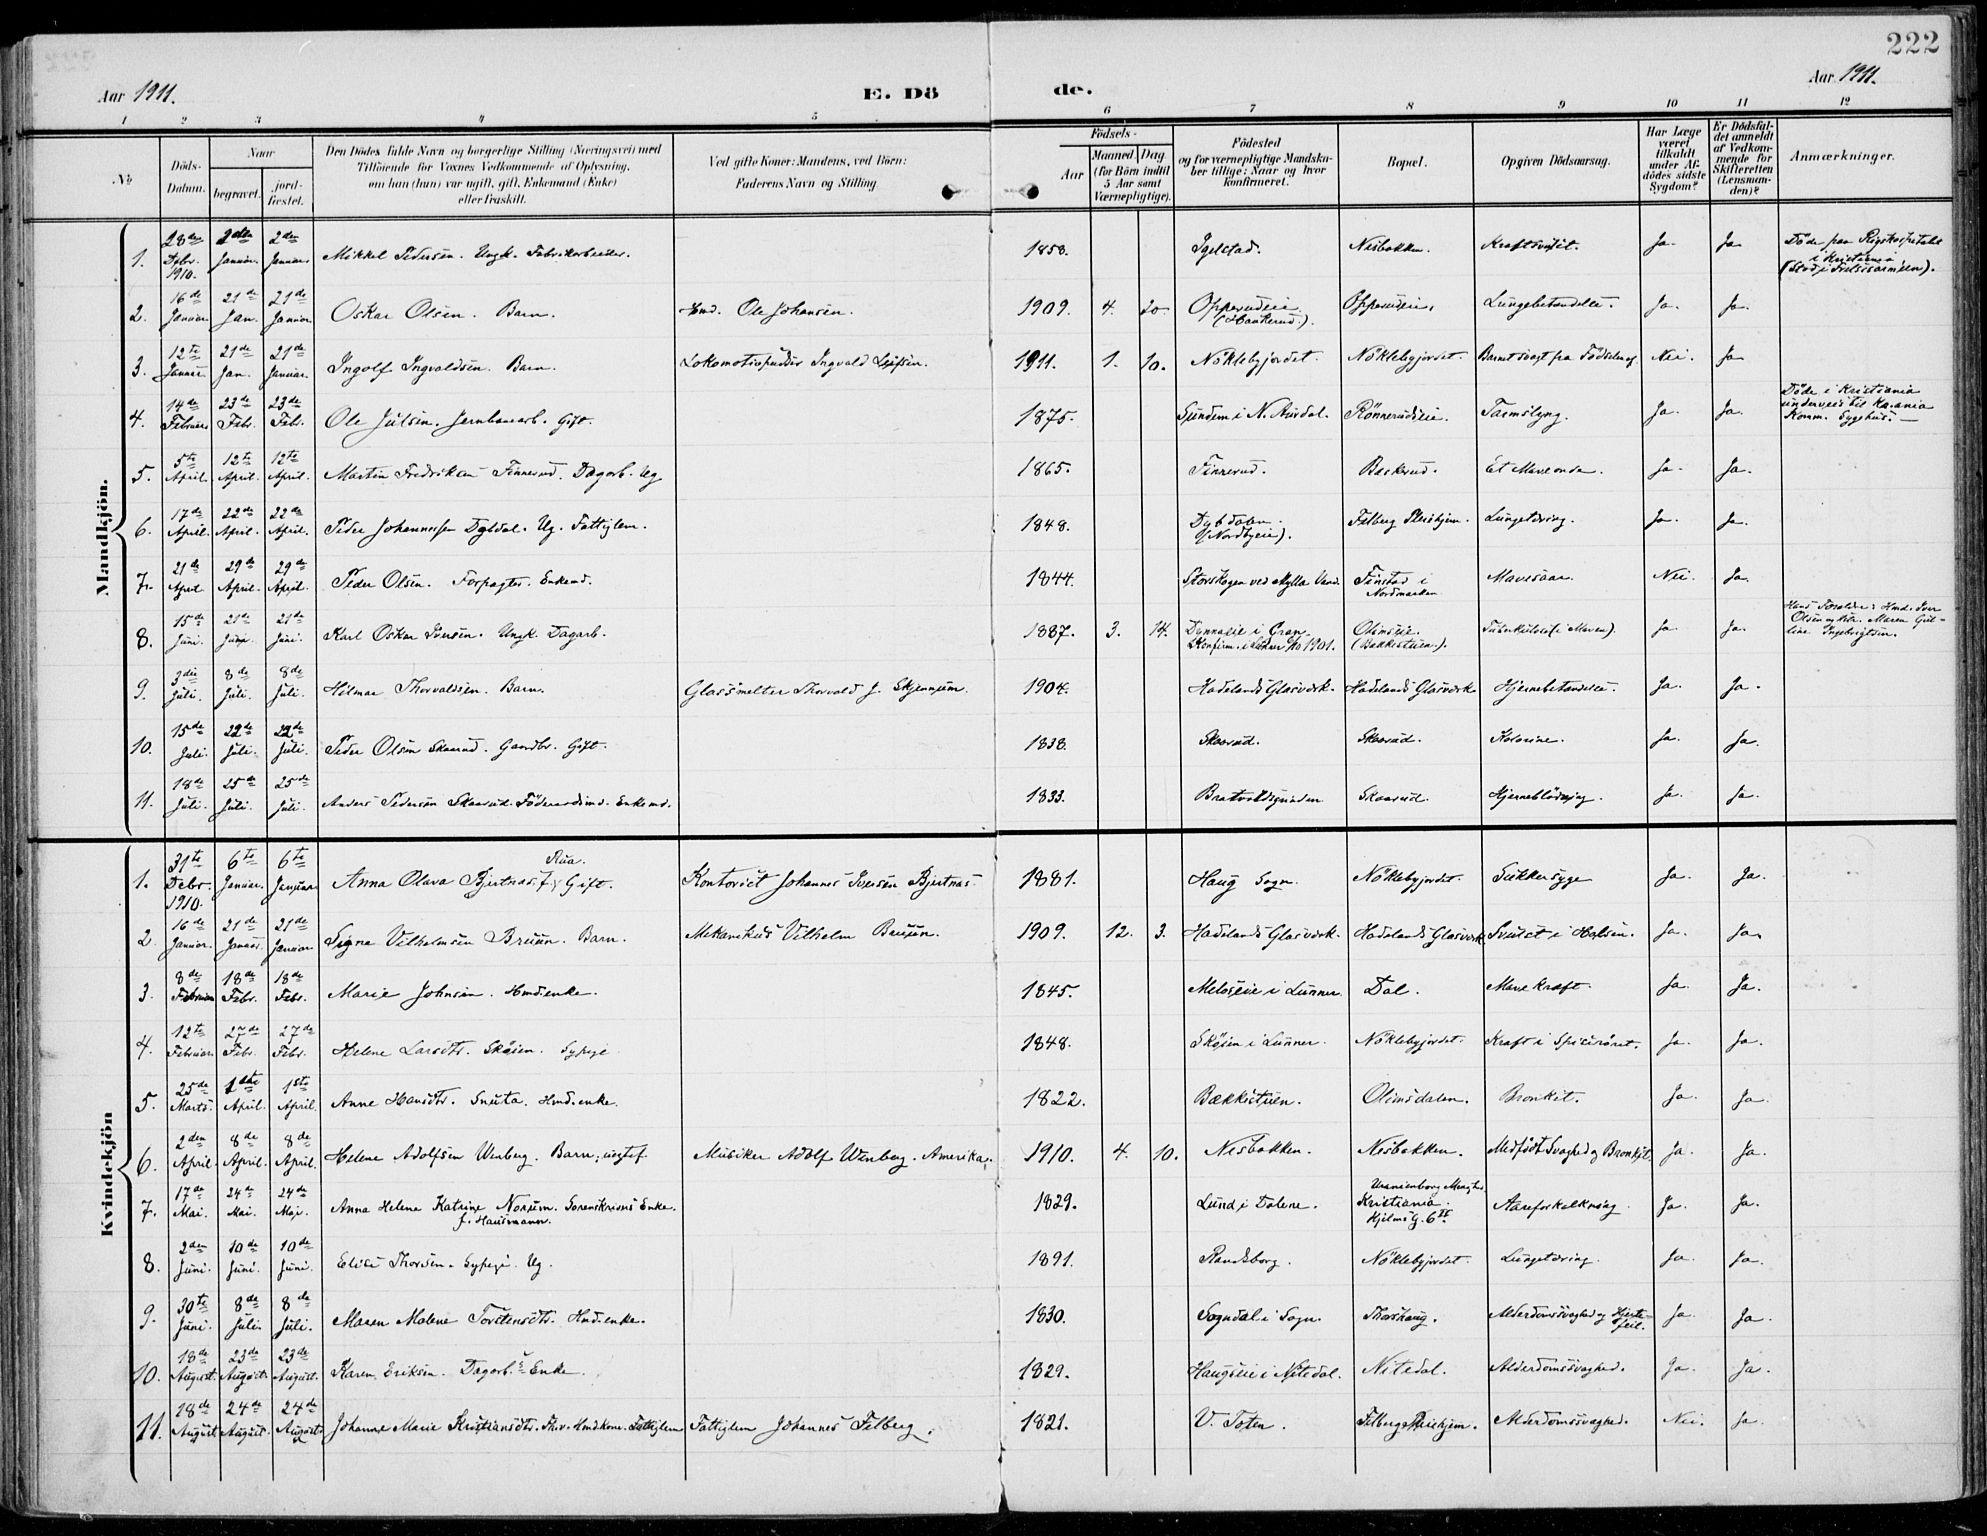 222
Aar 1911. E. Dö de. Aar 1911.
1 2 3 4 5 6 7 8 9 10 11 12
No
Döds-Datum.
Naar
begravet. jord-fæstet.
Den Dödes fulde Navn og borgerlige Stilling (Næringsvei) med
Tilföiende for Voxnes Vedkommende af Oplysning,
om han (hun) var ugift, gift, Enkemand (Enke)
eller fraskilt.
Ved gifte Koner: Mandens, ved Börn:
Faderens Navn og Stilling.
Födsels-
Aar Maaned Dag
(for Börn indtil 5 Aar samt Værnepligtige).
Födested
og for værnepligtige Mandska-
ber tillige: Naar og hvor
konfirmeret.
Bopæl.
Opgiven Dödsaarsag.
Har Læge været tilkaldt under Af-dödes sidste Sygdom?
Er Dödsfal-det anmeldt af Vedkom-mende for Skifteretten (Lensman-den)?
Anmærkninger.
Mandkjön.
1. 28de Debr. 1910. 2den Januar. 2den Januar. Mikkel Pedersen. Ungk. Fabrikarbeider. 1858. Igelstad. Nesbakken. Ja. Ja. Döde paa Rigshospitalet i Kristiania
2. 16de Januar. 21de Jan. 21de Januar. Oskar Olsen. Barn. Hmd. Ole Johansen. 1909. 4. 20. Opperudeie. Opperudeie. Lungebetændelse. Ja. Ja.
3. 12te Januar. 21de Jan. 21de Januar. Ingolf Ingvaldsen. Barn. Lokomotivpudser Ingvald 1911. 1. 10. Nöklebyjordet. Nöklebyjordet. Barnet svagt fra Födselen af Nei. Ja
4. 14de Februar 23de Febr. 23de Febr. Ole Julsen. Jernbanearb. Gift. 1875. Sundum i N. Aurdal. Rönnerudseie. Tarmslyng. Ja. Ja. Döde i Kristiania underveis til Kr.ania Komm. Sygehus.
5. 5te April. 12te April. 12te April. Martin Fredriksen Finnerud. Dagarb. Ug 1865. Finnerud. Et Maveonde. Ja. Ja.
6. 17de April. 22de April. 22de April. Peder Johannessen Ug. Fattiglem. 1848. Dybdalen. (Nordbyeie). Felberg Pleiehjem. Lungetæring. Ja. Ja.
7. 21de April 29de April. 29de April. Peder Olsen. Forpagter. Enkemd. 1844. Storskogen ved Mylla Vand. Finstad i Nordmarken Mavesaar. Nei. Ja.
8. 15de Juni. 21de Juni. 21de Juni. Karl Oskar Iversen. Ungk. Dagarb. 1887. 3. 14. i Gran. Konfirm. i Lunner 1901. Olimseie. (Bækkestuen.). Tuberkulose (i Maven). Ja. Ja. Hans Forældre: Hmd. Iver Olsen og Maren Guline Ingebrigtsen.
9. 3die Juli. 8de Juli. 8de Juli. Hilmar Thorvaldsen. Barn. Glassmelter Thorvald J. Skjennum. 1904. Hadelands Glasværk. Hadelands Glasværk Hjernebetændelse. Ja. Ja.
10. 15de Juli. 22de Juli. 22de Juli. Peder Olsen Skaarud. Gaardbr. Gift. 1838. Skaarud. Skaarud. Kolerine. Ja. Ja.
11. 18de Juli. 25de Juli. 25de Juli. Anders Pedersen Skaarud. Föderaadsmd. Enkemd. 1833. Skaarud. Hjerneblödning. Ja. Ja.
Kvindekjön
1. 31te Debr. 1910. 6te Januar. 6te Januar Anna Olava Bjertnæs, f. Rua. Gift. Kontorist Johannes Iversen Bjertnæs 1881. Haug Sogn. Nöklebyjordet. Sukkersyge Ja. Ja.
2. 16de Januar. 21de Januar. 21de Januar. Signe Vilhelmsen Bruun. Barn. Mekanikus Vilhelm Bruun. 1909. 12. 3. Hadelands Glasværk. Hadelands Glasværk Svulst i Halsen. Ja. Ja.
3. 8de Februar 18de Febr. 18de Febr. Marie Johnsen. Hmd.enke. 1845. Meloseie i Lunner. Dal. Mavekræft. Ja. Ja.
4. 12te Februar. 27de Febr. 27de Febr. Helene Larsdtr. Skøien. Sypige 1848. Skøien i Lunner. Nöklebyjordet. Kræft i Spiserøret. Ja. Ja.
5. 25de Marts. 1ste April. 1ste April. Anne Hansdtr. Snuta. Hmd.enke. 1822. Bækkistuen. Olimsdalen. Bronkit. Ja. Ja.
6. 2den April. 8de April. 8de April. Helene Adolfsen Wenberg. Barn; uægtef. Musiker Adolf Wenberg. Amerika. 1910. 4. 10. Nesbakken. Nesbakken. Medfødt Svaghed og Bronkit. Ja. Ja.
7. 17de Mai. 24de Mai. 24de Mai. Anna Helene Katrine Norum. Sorenskrivers Enke. f. Hausmann. 1829. Lund i Dalene. Uranienborg Menighed Kristiania. Hjelms G. 6 II. Aareforkalkning. Ja. Ja.
8. 2den Juni. 10de Juni. 10de Juni. Elise Thorsen. Sypige. Ug. 1891. Randsborg. Nöklebyjordet. Lungetæring. Ja. Ja.
9. 30te Juni. 8de Juli. 8de Juli. Maren Malene Torstensdtr. Hmd.enke. 1830. Sogndal i Sogn. Thorshaug. Alderdomssvaghed og Hjerte-feil. Ja. Ja.
10. 18de August. 23de August. 23de August. Karen Eriksen. Dagarb.s Enke. 1829. Haugseie i Nitedal. Nitedal. Alderdomssvaghed. Ja. Ja.
11. 18de August. 24de August. 24de August. Johanne Marie Kristiansdtr. Hmdkone. Fattiglem Fattiglem Johannes Felberg. 1821. V. Toten. Felberg Pleiehjem. Alderdomssvaghed. Nei. Ja.